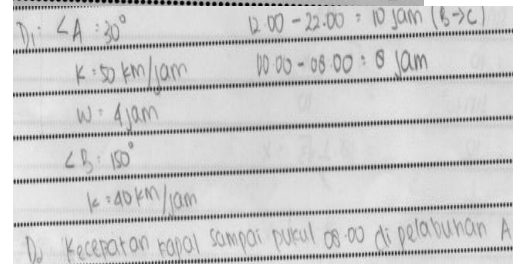 D₁: ∠A : 30° 12.00 - 22.00 = 10 jam (B→C)
K : 50 km/jam 00.00 - 08.00 = 8 jam
W = 4 jam
∠B : 150°
k = 40 km/jam
D₂ Kecepatan kapal sampai pukul 08.00 di pelabuhan A